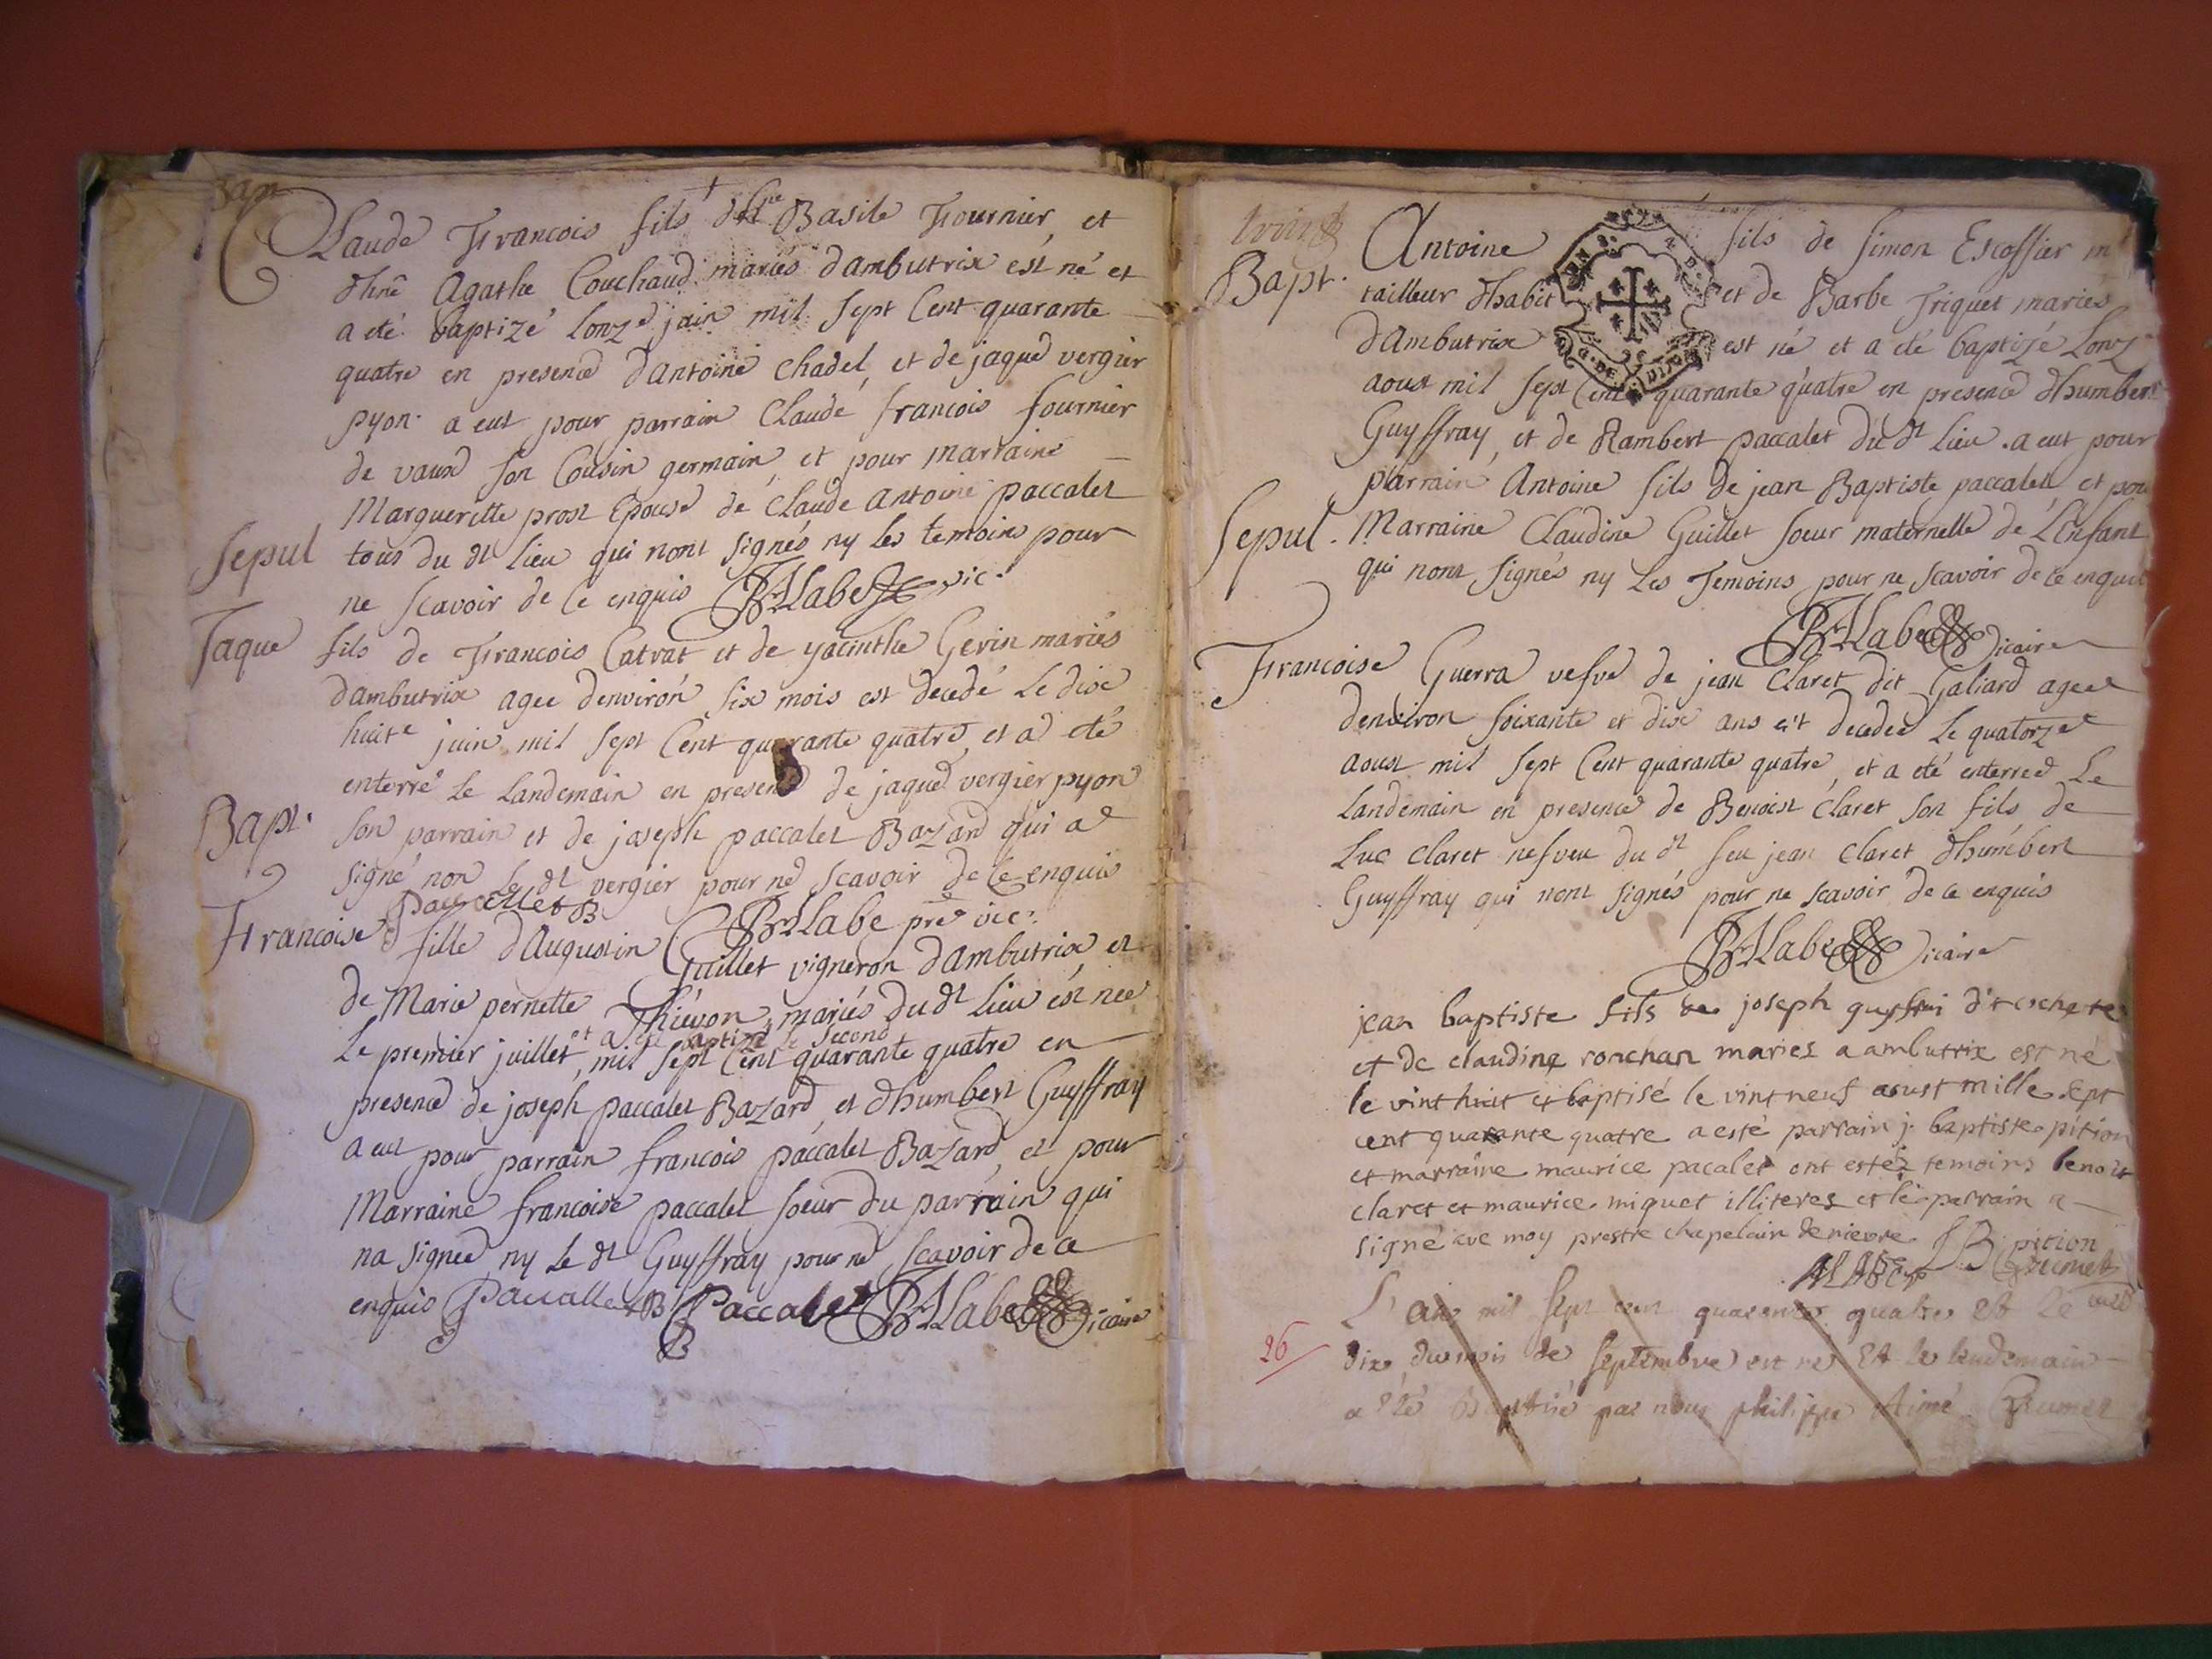 Bap
Claude Francois fils d'hle Basile Fournier, et
dhne Agathe Couchaud mariés dambutrix est né et
a eté baptizé lonze juin mil sept Cent quarante
quatre en presence dantoine chadel, et de jaque vergier
pyon. a eut pour parrain Claude francois fournier
de vaux son Cousin germain, et pour marraine
Margueritte prost Epouse de Claude antoine paccalet
Sepul
tous du dt Lieu qui nont signés ny les temoins pour
ne scavoir de ce enquis Labe vic.
Jaque fils de Francois Catrat et de yacinthe Gerin mariés
dambutrix agee denviron six mois est decedé le dix
huite juin mil sept Cent quarante quatre, et a eté
enterré le Landemain en presence de jaque vergier pyon
Bapt.
son parrain et de joseph paccalet Bazard qui a
signé non le dt vergier pour ne scavoir de ce enquis
Paccallet B Labe pre vic.
Francoise fille daugustin Guillet vigneron dambutrix et
de Marie pernette Thievon mariés du dt lieu est nee
et a eté baptizé le second
Le premier juillet, mil sept Cent quarante quatre en
presence de joseph paccalet Bazard, et dhumbert Guyffray
a eut pour parrain francois paccalet Bazard, et pour
Marraine francoise paccalet soeur du parrain qui
na signee ny le dt Guyffray pour ne scavoir de ce
enquis Paccallet B Paccalet Labe Vicaire
B
Bapt.
Antoine fils de Simon Escoffier m
tailleur dhabit et de Barbe Triquet mariés
dambutrix est né et a eté baptizé Lonz
aoust mil sept Cent quarante quatre en presence dhumbert
G. DE DIJON
Guyffray, et de Rambert paccalet du dt Lieu. a eut pour
parrain Antoine fils de jean Baptiste paccalet, et pou
Sepul.
Marraine Claudine Guillet soeur maternelle de L'Enfant
qui nont signés ny Les Temoins pour ne scavoir de ce enquis
Labe Vicaire
Francoise Guerra vefve de jean Claret dit Galiard agee
denviron soixante et dix ans est decedee le quatorze
aoust mil sept Cent quarante quatre, et a eté enterree Le
Landemain en presence de Benoist Claret son fils de
Luc Claret nefveu du dt feu jean Claret dhumbert
Guyffray qui nont signés pour ne scavoir de ce enquis
Labe Vicaire
jean baptiste fils de joseph guyffrai dit cochete
et de claudine ronchan mariez a ambutrix est né
le vint huit et baptisé le vint neuf aoust mille sept
cent quarante quatre a esté parrain j. baptiste pition
et marraine maurice pacalet ont estéz temoins benoit
claret et maurice miguet illiteres et le parrain a
signé ave moy prestre chapelain de nievre JB pition
Grumet
L'an mil sept cent quarente quatre et le
26
dix du mois de septembre est né et le lendemain
a été Baptisé par nous philippe Aimé Grumet